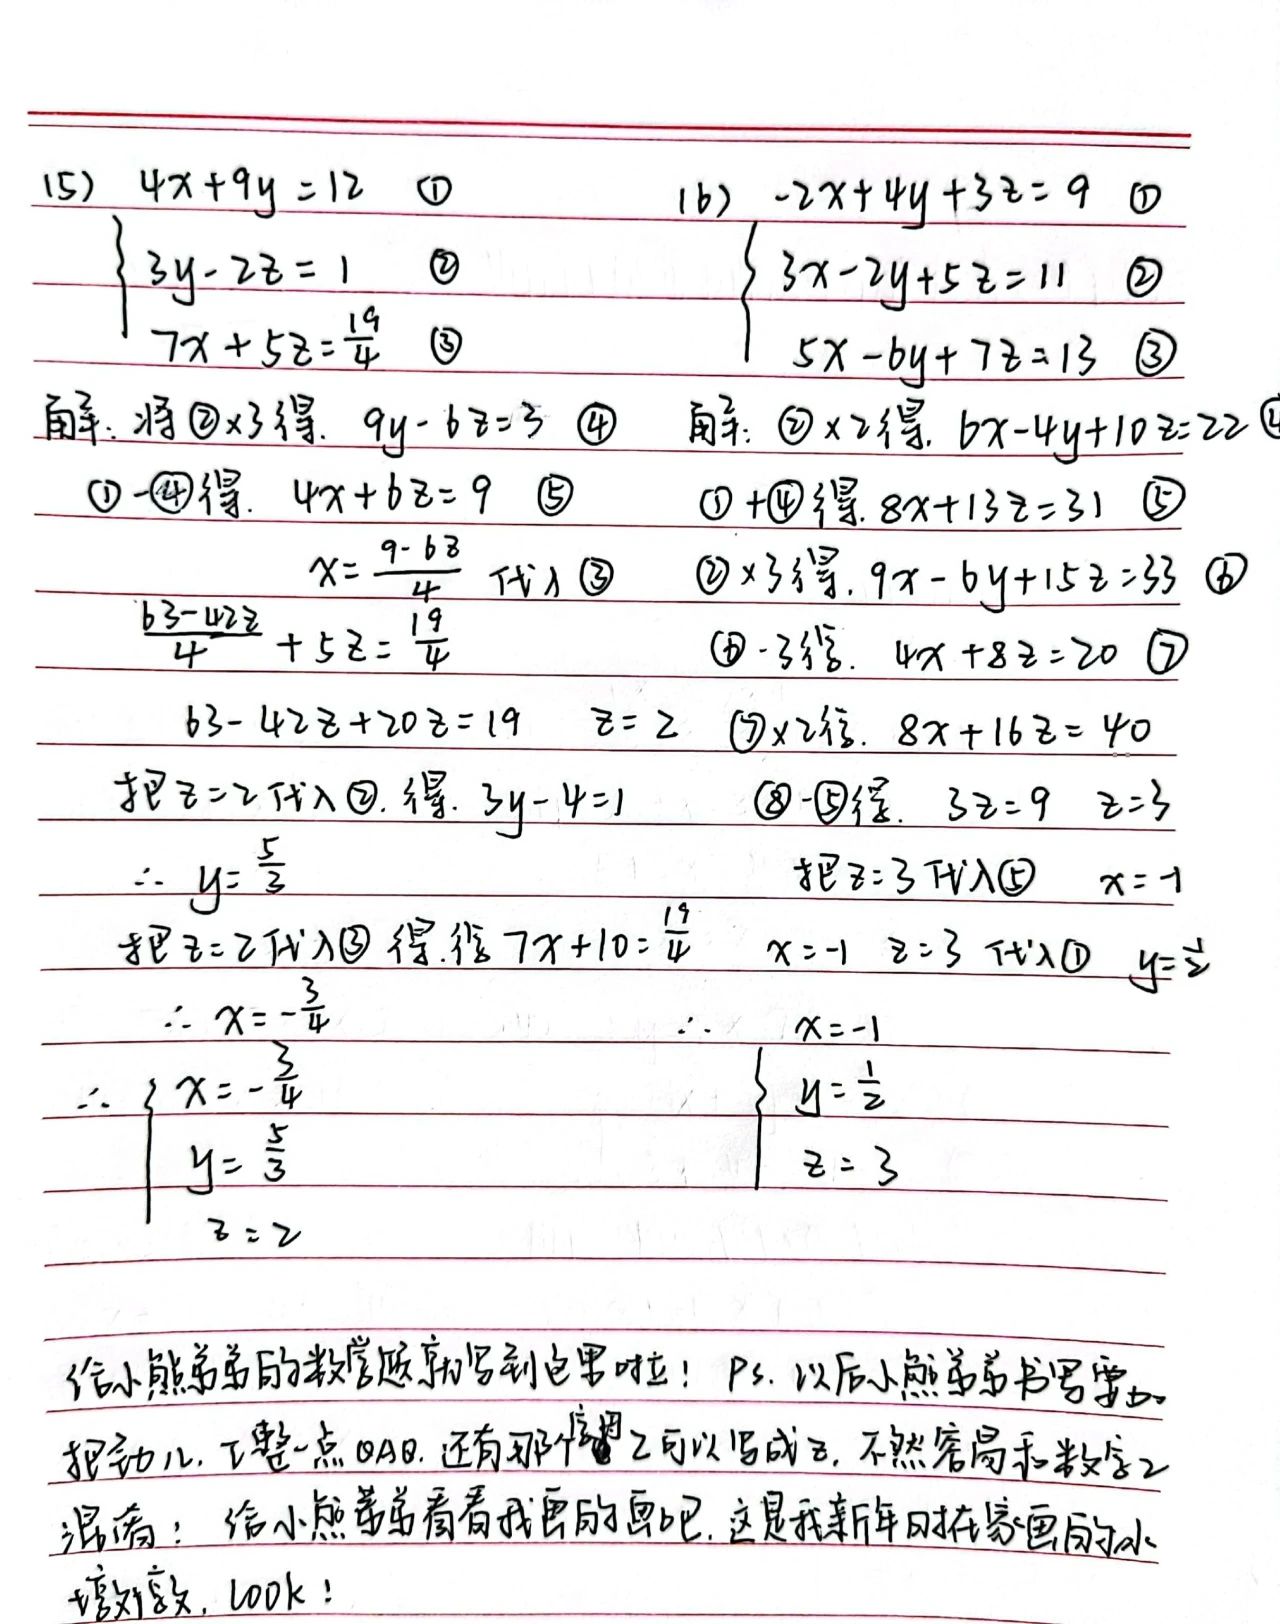 15) 4x+9y=12 ①
3y-2z=1 ②
7x+5z=19/4 ③
解: 将②×3得. 9y-6z=3 ④
①-④得. 4x+6z=9 ⑤
x=(9-6z)/4 代入③
(63-42z)/4+5z=19/4
63-42z+20z=19 z=2
把z=2代入②.得. 3y-4=1
∴ y=5/3
把z=2代入③得.得7x+10=19/4
∴ x=-3/4
∴ x=-3/4
y=5/3
z=2
16) -2x+4y+3z=9 ①
3x-2y+5z=11 ②
5x-6y+7z=13 ③
解: ②×2得. 6x-4y+10z=22 ④
①+④得. 8x+13z=31 ⑤
②×3得. 9x-6y+15z=33 ⑥
⑥-3得. 4x+8z=20 ⑦
⑦×2得. 8x+16z=40
⑧-⑤得. 3z=9 z=3
把z=3代入⑤ x=-1
x=-1 z=3 代入① y=1/2
∴ x=-1
y=1/2
z=3
给小熊弟弟的数学题就写到这里啦! Ps. 以后小熊弟弟书写要加
把劲儿.工整一点QAQ.还有那个字母Z可以写成z.不然容易和数字2
混淆! 给小熊弟弟看看我画的画吧.这是我新年时在家画的冰
墩墩. look!